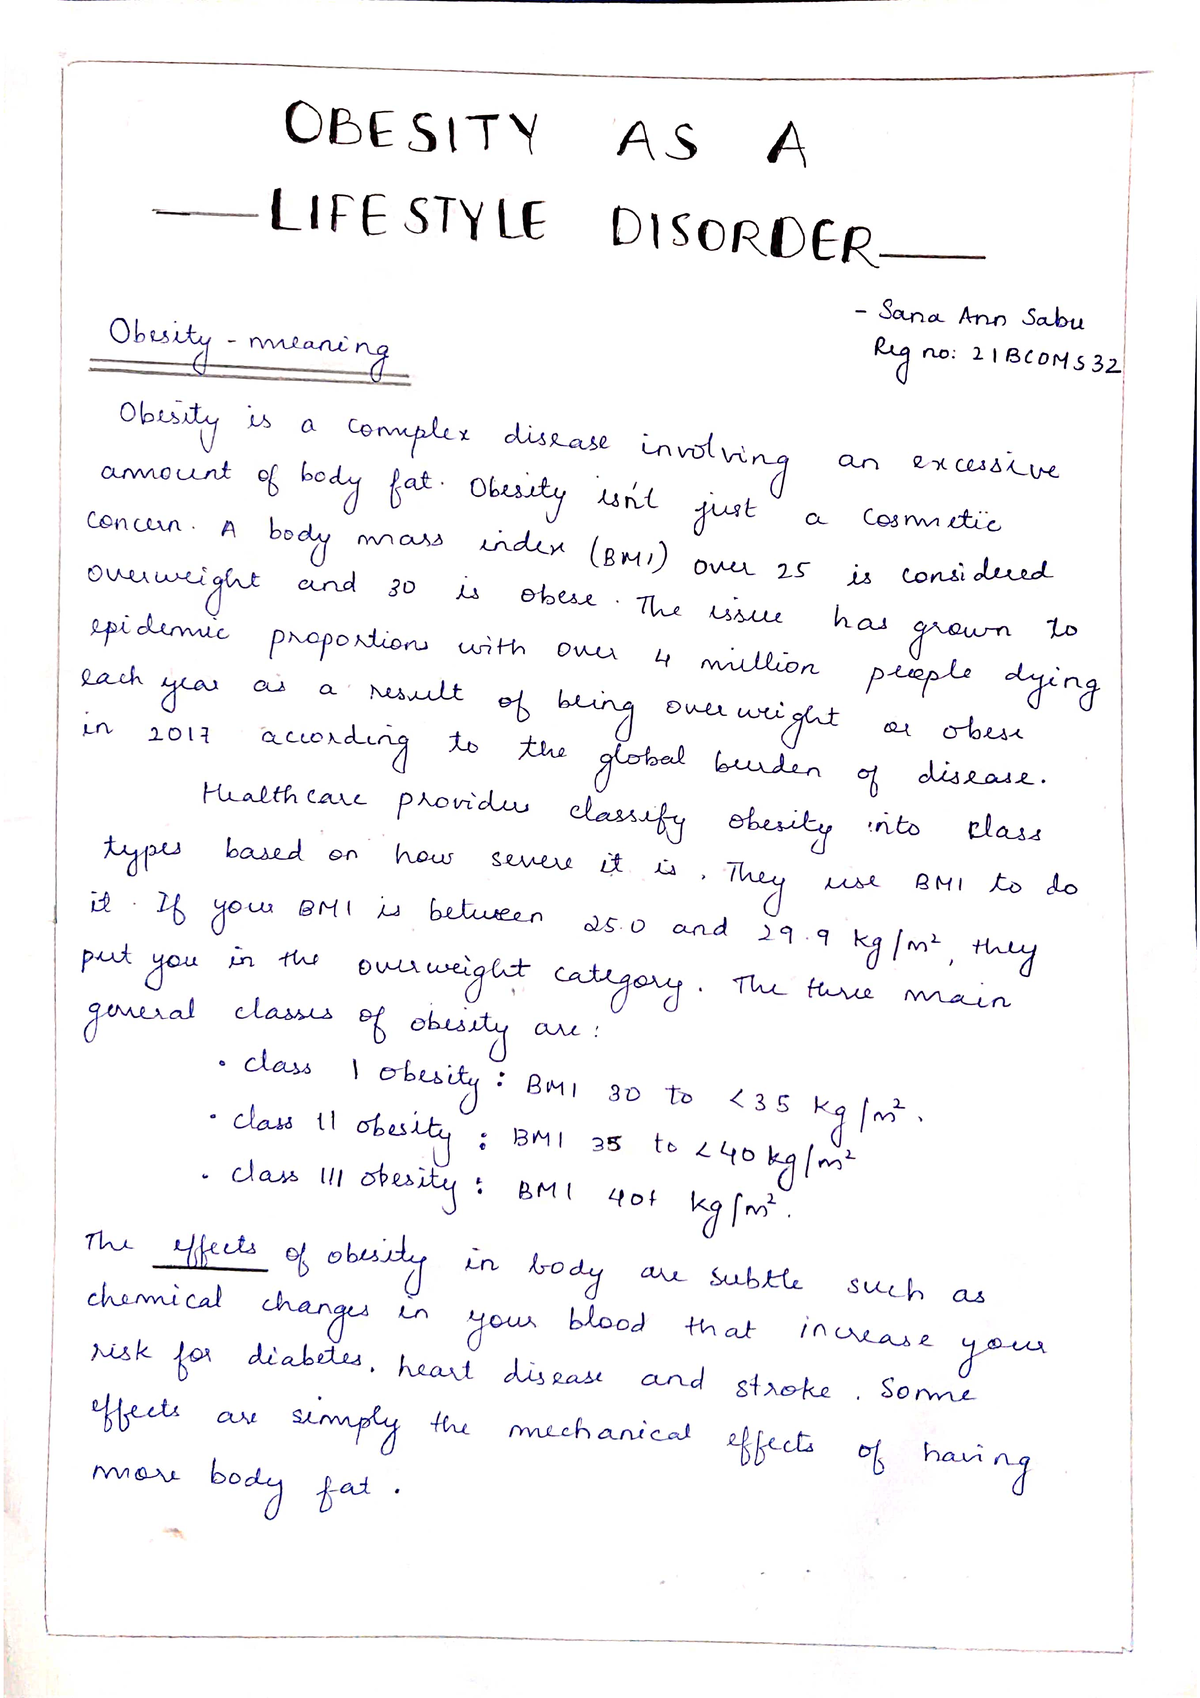 OBESITY AS A
LIFESTYLE DISORDER
- Sana Ann Sabu
Reg no: 21BCOM532
Obesity - meaning
Obesity is a complex disease involving an excessive
amount of body fat. Obesity isn't just a cosmetic
concern. A body mass index (BMI) over 25 is considered
overweight and 30 is obese. The issue has grown to
epidemic proportions with over 4 million people dying
each year as a result of being overweight or obese
in 2017 according to the global burden of disease.
Healthcare provides classify obesity into class
types based on how severe it is. They use BMI to do
it. If your BMI is between 25.0 and 29.9 kg/m², they
put you in the overweight category. The three main
general classes of obesity are:
• class I obesity: BMI 30 to <35 kg/m².
• class II obesity: BMI 35 to <40 kg/m²
• class III obesity: BMI 40+ kg/m².
The effects of obesity in body are subtle such as
chemical changes in your blood that increase your
risk for diabetes, heart disease and stroke. Some
effects are simply the mechanical effects of having
more body fat.